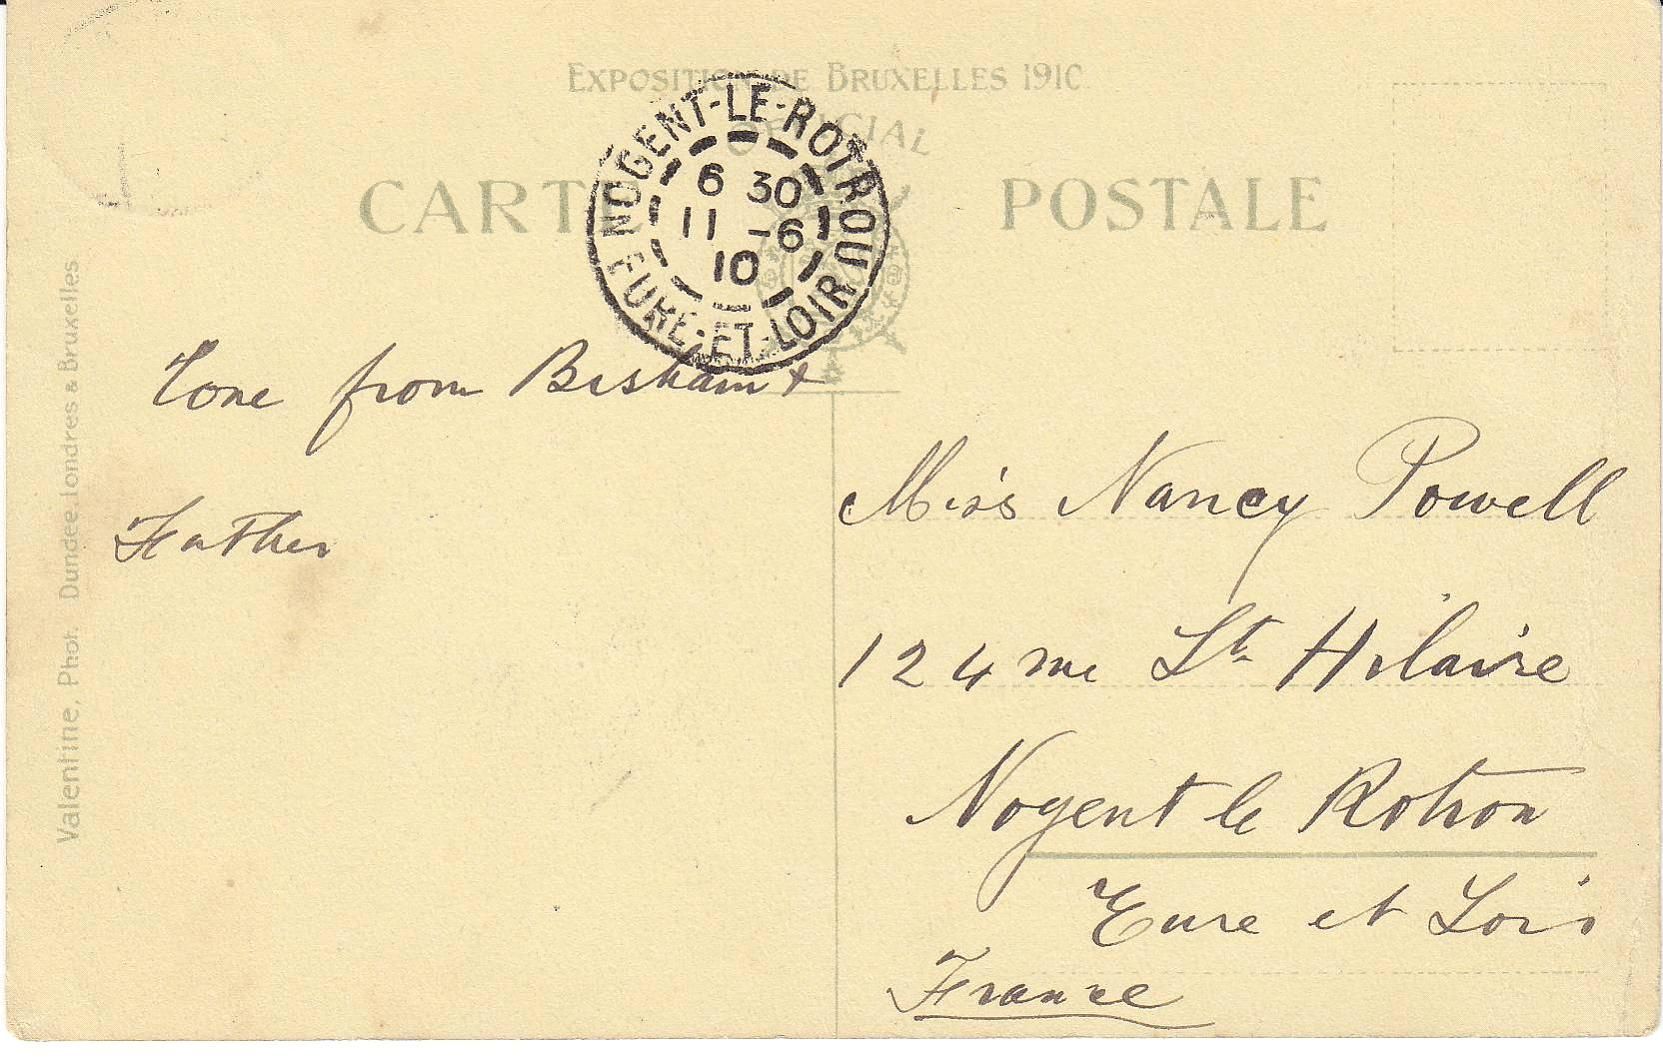 EXPOSITION DE BRUXELLES 1910
OFFICIAL
CARTE POSTALE
NOGENT-LE-ROTROU
6 30
11 -6
10
EURE-ET-LOIR
Valentine, Phot. Dundee. Londres & Bruxelles
from &
Father
Miss Nancy Powell
124 rue St. Hilaire
Nogent le Rotrou
Eure et Loir
France